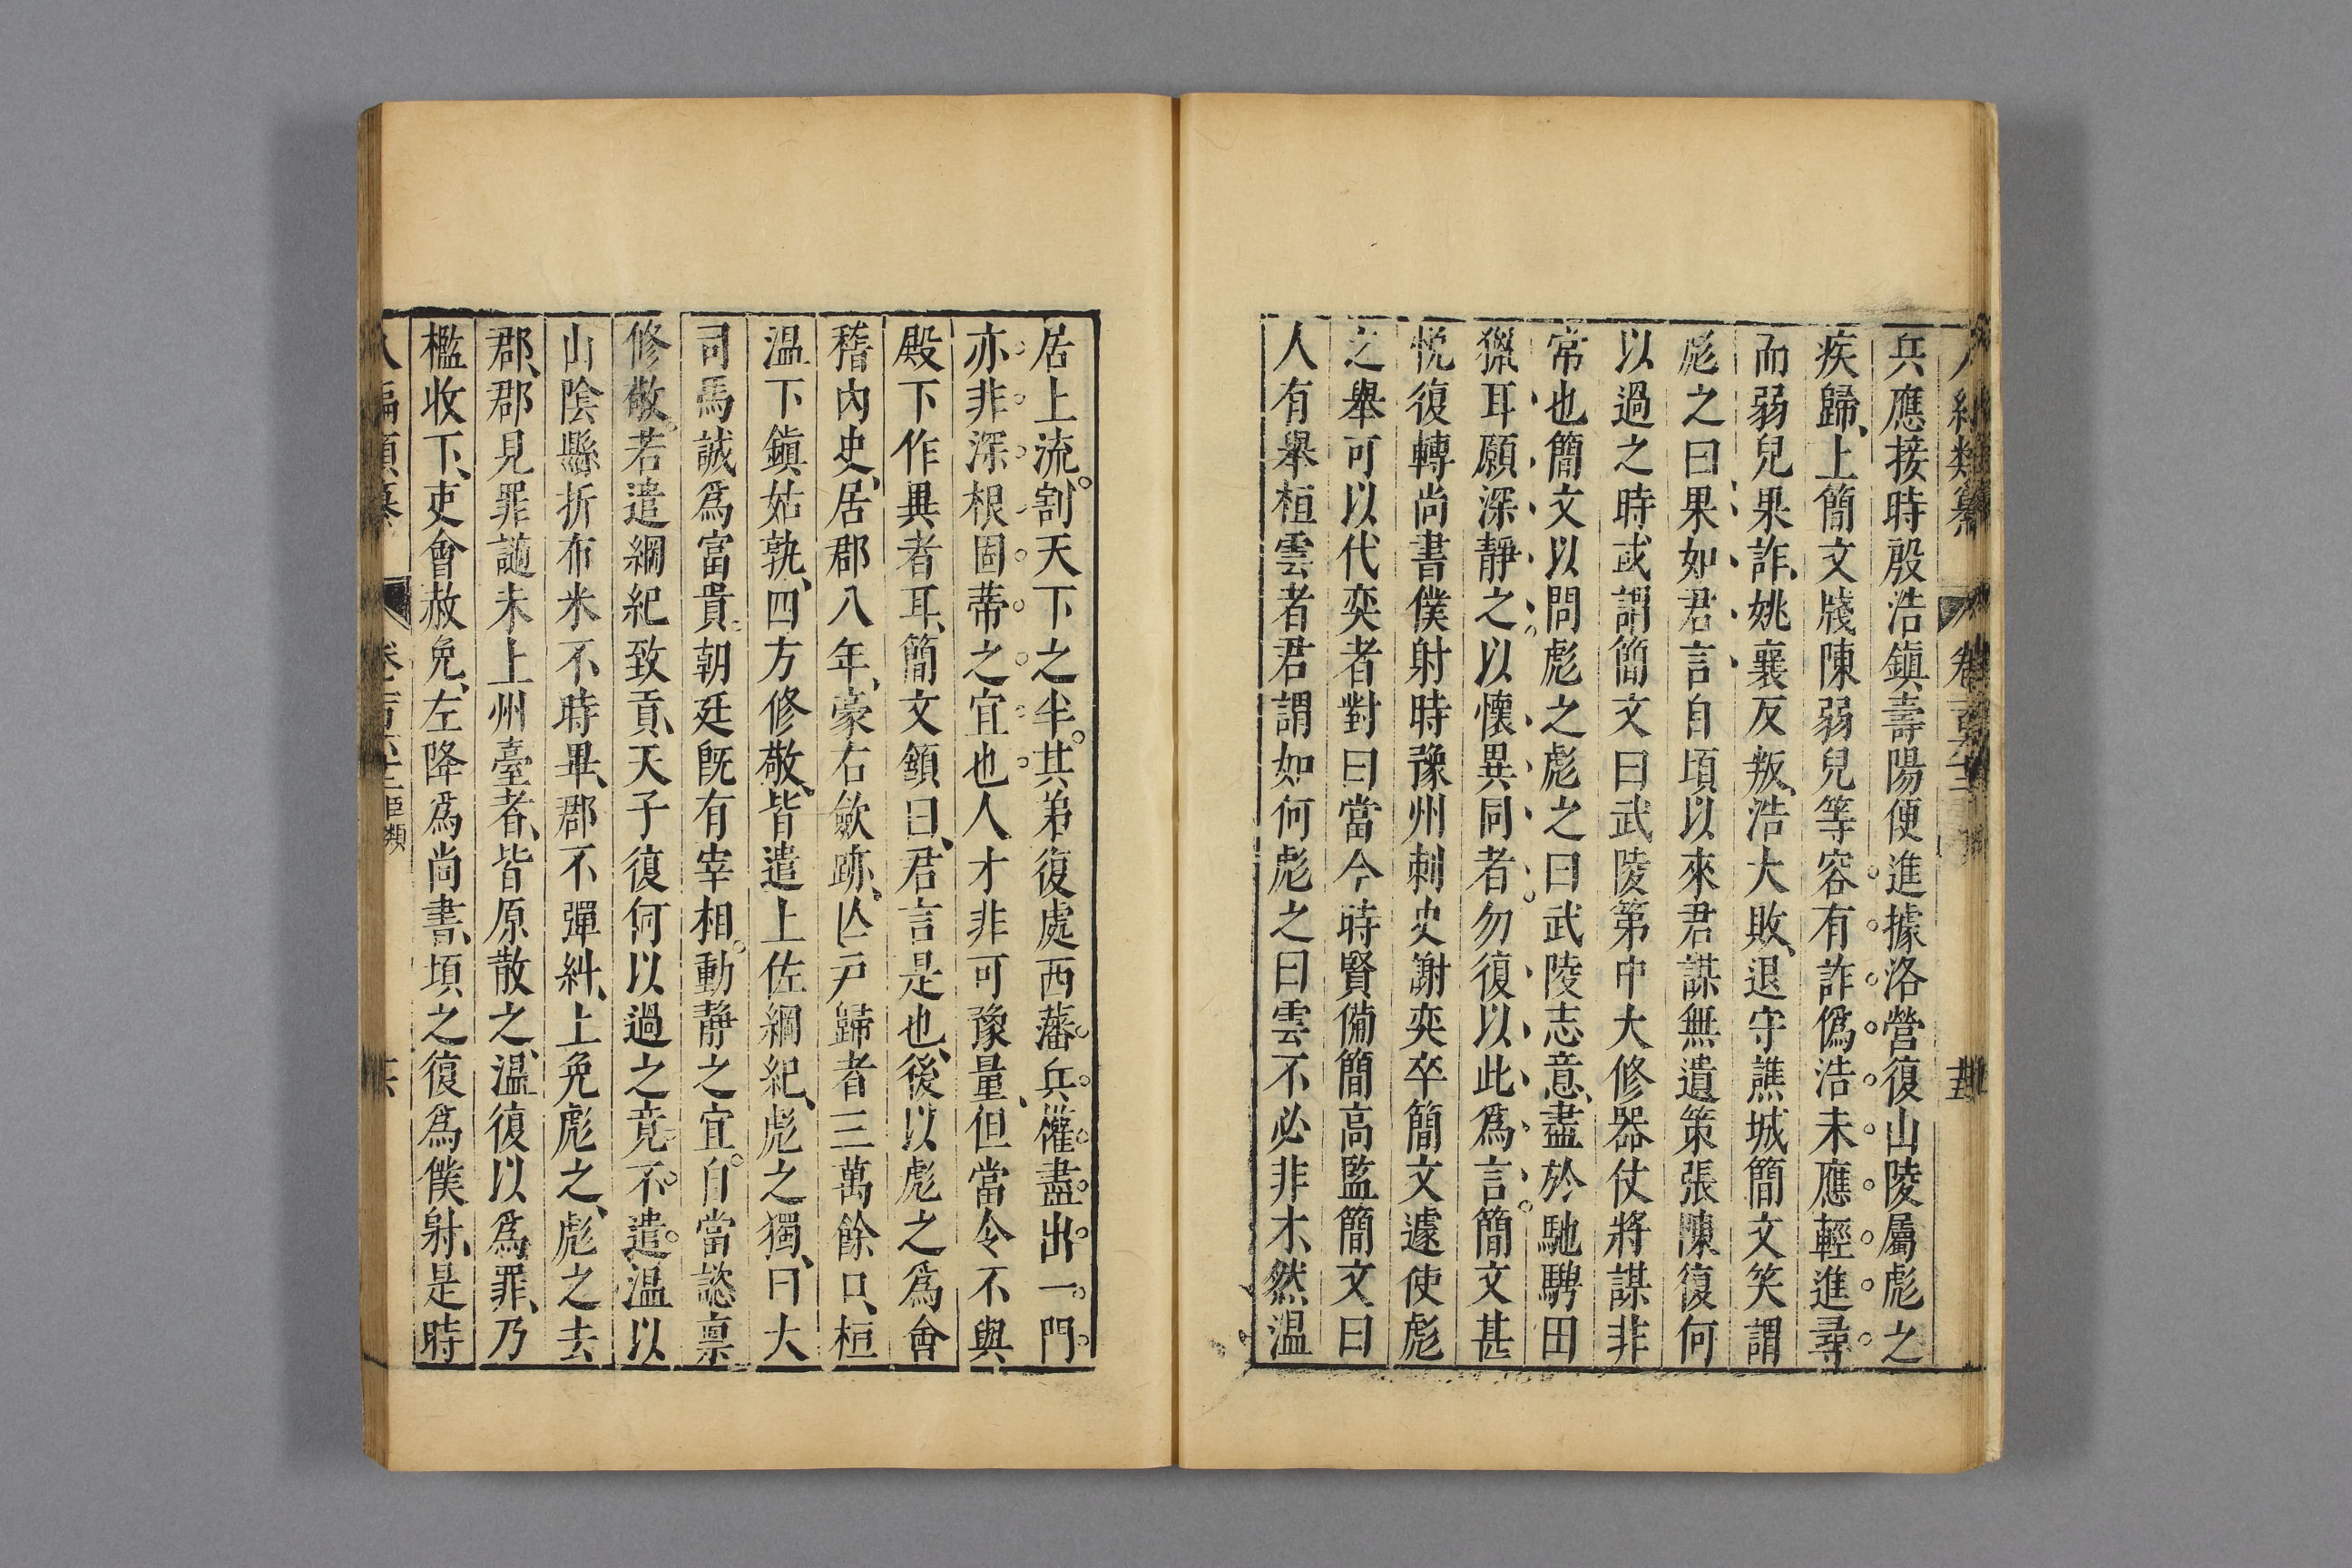 兵應接時殷浩鎭壽陽便進據洛營復山陵屬彪之
疾歸上簡文牋陳弱兒等容有詐僞浩未應輕進尋
而弱兒果詐姚襄反叛浩大敗退守譙城簡文笑謂
彪之曰果如君言自頃以來君謀無遺策張陳復何
以過之時或謂簡文曰武陵第中大修器仗將謀非
常也簡文以問彪之彪之曰武陵志意盡於馳騁田
獵耳願深靜之以懷異同者勿復以此爲言簡文甚
悅復轉尚書僕射時豫州刺史謝奕卒簡文遽使彪
之舉可以代奕者對曰當今時賢備簡高監簡文曰
人有舉桓雲者君謂如何彪之曰雲不必非才然溫
居上流割天下之半其弟復處西藩兵權盡出一門
亦非深根固蒂之宜也人才非可豫量但當令不與
殿下作異者耳簡文頷曰君言是也後以彪之爲會
稽內史居郡八年豪右斂跡亾戸歸者三萬餘口桓
溫下鎭姑孰四方修敬皆遣上佐綱紀彪之獨曰大
司馬誠爲富貴朝廷旣有宰相動靜之宜自當諮稟
修敬若遣綱紀致貢天子復何以過之竟不遣溫以
山陰縣折布米不時畢郡不彈糾上免彪之彪之去
郡郡見罪謫未上州臺者皆原散之溫復以爲罪乃
檻收下吏會赦免左降爲尚書頃之復爲僕射是時